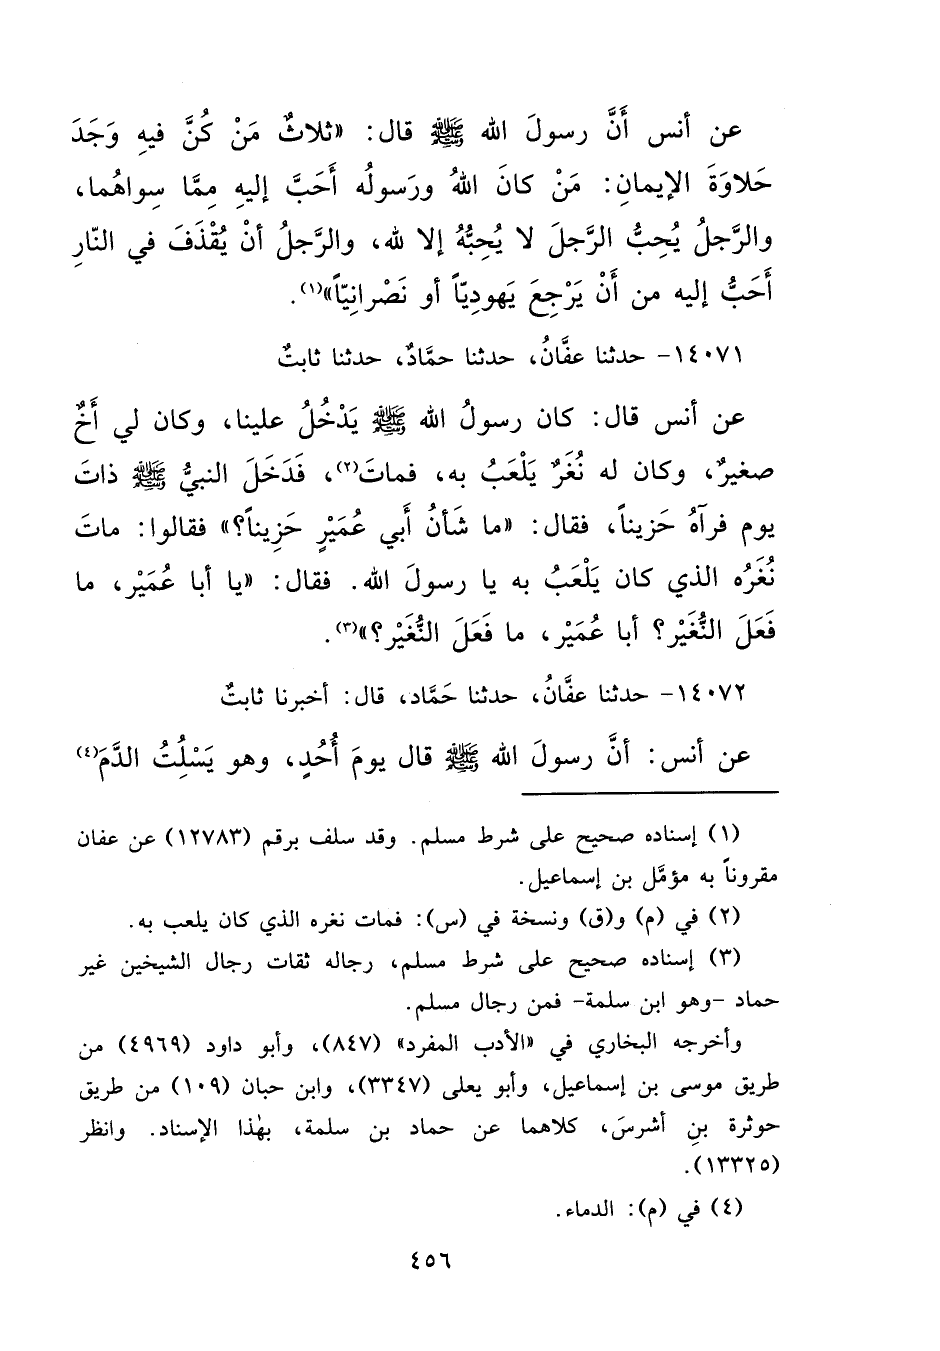 عن أنس أَنَّ رسولَ الله ﷺ قال: «ثلاثٌ مَنْ كُنَّ فيهِ وَجَدَ
حَلاوَةَ الإيمانِ: مَنْ كانَ اللهُ ورَسولُه أَحَبَّ إليهِ مِمَّا سِواهُما،
والرَّجلُ يُحِبُّ الرَّجلَ لا يُحِبُّهُ إلا لله، والرَّجلُ أنْ يُقْذَفَ في النّارِ
أَحَبُّ إليه من أَنْ يَرْجِعَ يَهودِيّاً أو نَصْرانِيّاً»(١).
١٤٠٧١- حدثنا عفَّانُ، حدثنا حمَّادٌ، حدثنا ثابتٌ
عن أنس قال: كان رسولُ الله ﷺ يَدْخُلُ علينا، وكان لي أَخٌ
صغيرٌ، وكان له نُغَرٌ يَلْعَبُ به، فماتَ(٢)، فَدَخَلَ النبيُّ ﷺ ذاتَ
يوم فرآهُ حَزيناً، فقال: «ما شَأنُ أَبي عُمَيْرٍ حَزِيناً؟» فقالوا: ماتَ
نُغَرُه الذي كان يَلْعَبُ به يا رسولَ الله. فقال: «يا أبا عُمَيْر، ما
فَعَلَ النُّغَيْر؟ أبا عُمَيْر، ما فَعَلَ النُّغَيْر؟»(٣).
١٤٠٧٢- حدثنا عفَّانُ، حدثنا حَمَّاد، قال: أخبرنا ثابتٌ
عن أنس: أنَّ رسولَ الله ﷺ قال يومَ أُحُدٍ، وهو يَسْلِتُ الدَّمَ(٤)
(١) إسناده صحيح على شرط مسلم. وقد سلف برقم (١٢٧٨٣) عن عفان
مقروناً به مؤمَّل بن إسماعيل.
(٢) في (م) و(ق) ونسخة في (س): فمات نغره الذي كان يلعب به.
(٣) إسناده صحيح على شرط مسلم، رجاله ثقات رجال الشيخين غير
حماد -وهو ابن سلمة- فمن رجال مسلم.
وأخرجه البخاري في «الأدب المفرد» (٨٤٧)، وأبو داود (٤٩٦٩) من
طريق موسى بن إسماعيل، وأبو يعلى (٣٣٤٧)، وابن حبان (١٠٩) من طريق
حوثرة بنِ أشرسَ، كلاهما عن حماد بن سلمة، بهٰذا الإسناد. وانظر
(١٣٣٢٥).
(٤) في (م): الدماء.
٤٥٦